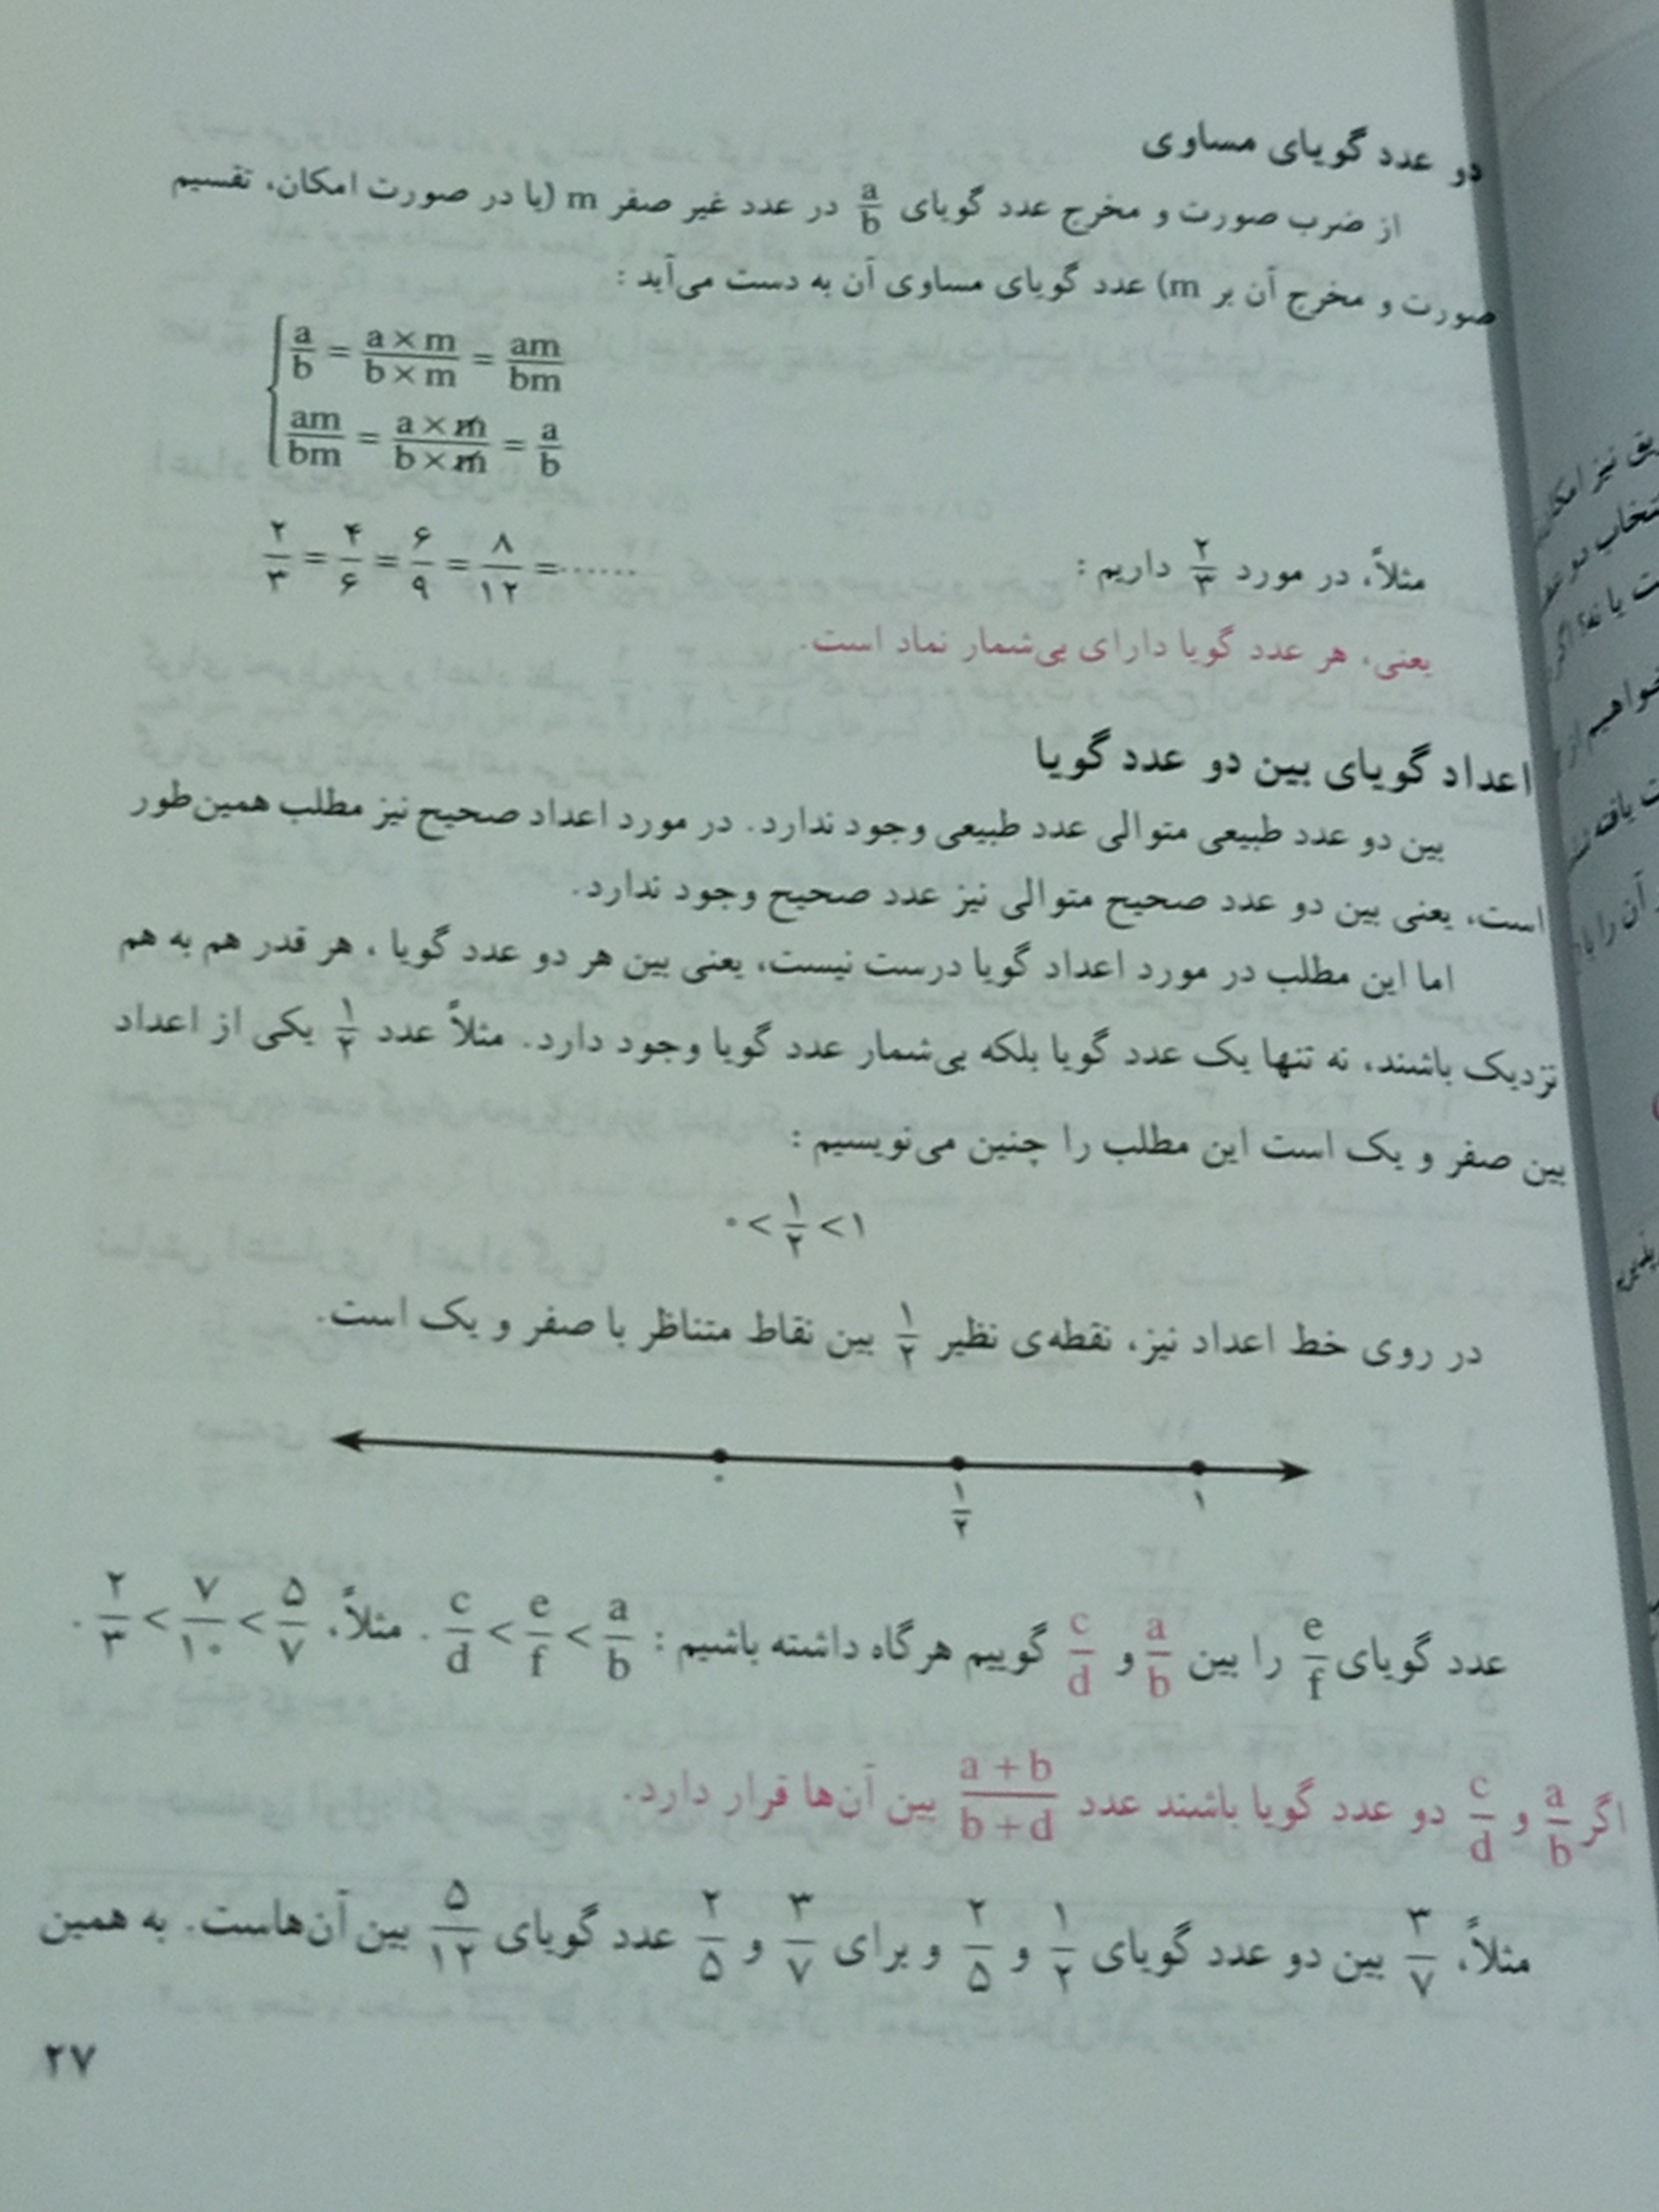 دو عدد گویای مساوی
از ضرب صورت و مخرج عدد گویای a/b در عدد غیر صفر m (یا در صورت امکان، تقسیم
صورت و مخرج آن بر m) عدد گویای مساوی آن به دست می‌آید :
a/b = a×m/b×m = am/bm
am/bm = a×m/b×m = a/b
مثلاً، در مورد ۲/۳ داریم : ۲/۳ = ۴/۶ = ۶/۹ = ۸/۱۲ = ......
یعنی، هر عدد گویا دارای بی‌شمار نماد است.
اعداد گویای بین دو عدد گویا
بین دو عدد طبیعی متوالی عدد طبیعی وجود ندارد. در مورد اعداد صحیح نیز مطلب همین‌طور
است، یعنی بین دو عدد صحیح متوالی نیز عدد صحیح وجود ندارد.
اما این مطلب در مورد اعداد گویا درست نیست، یعنی بین هر دو عدد گویا ، هر قدر هم به هم
نزدیک باشند، نه تنها یک عدد گویا بلکه بی‌شمار عدد گویا وجود دارد. مثلاً عدد ۱/۲ یکی از اعداد
بین صفر و یک است این مطلب را چنین می‌نویسیم :
۰ < ۱/۲ < ۱
در روی خط اعداد نیز، نقطه‌ی نظیر ۱/۲ بین نقاط متناظر با صفر و یک است.
۰ ۱/۲ ۱
عدد گویای e/f را بین a/b و c/d گوییم هرگاه داشته باشیم : c/d < e/f < a/b . مثلاً، ۲/۳ < ۷/۱۰ < ۵/۷ .
اگر a/b و c/d دو عدد گویا باشند عدد a+b/b+d بین آن‌ها قرار دارد.
مثلاً، ۳/۷ بین دو عدد گویای ۱/۲ و ۲/۵ و برای ۳/۷ و ۲/۵ عدد گویای ۵/۱۲ بین آن‌هاست. به همین
۲۷
یق نیز امکان
نتخاب دو عد
ت یا نه؟ اگر
خواهیم از
ت یافته شد
آن را با
پذیر